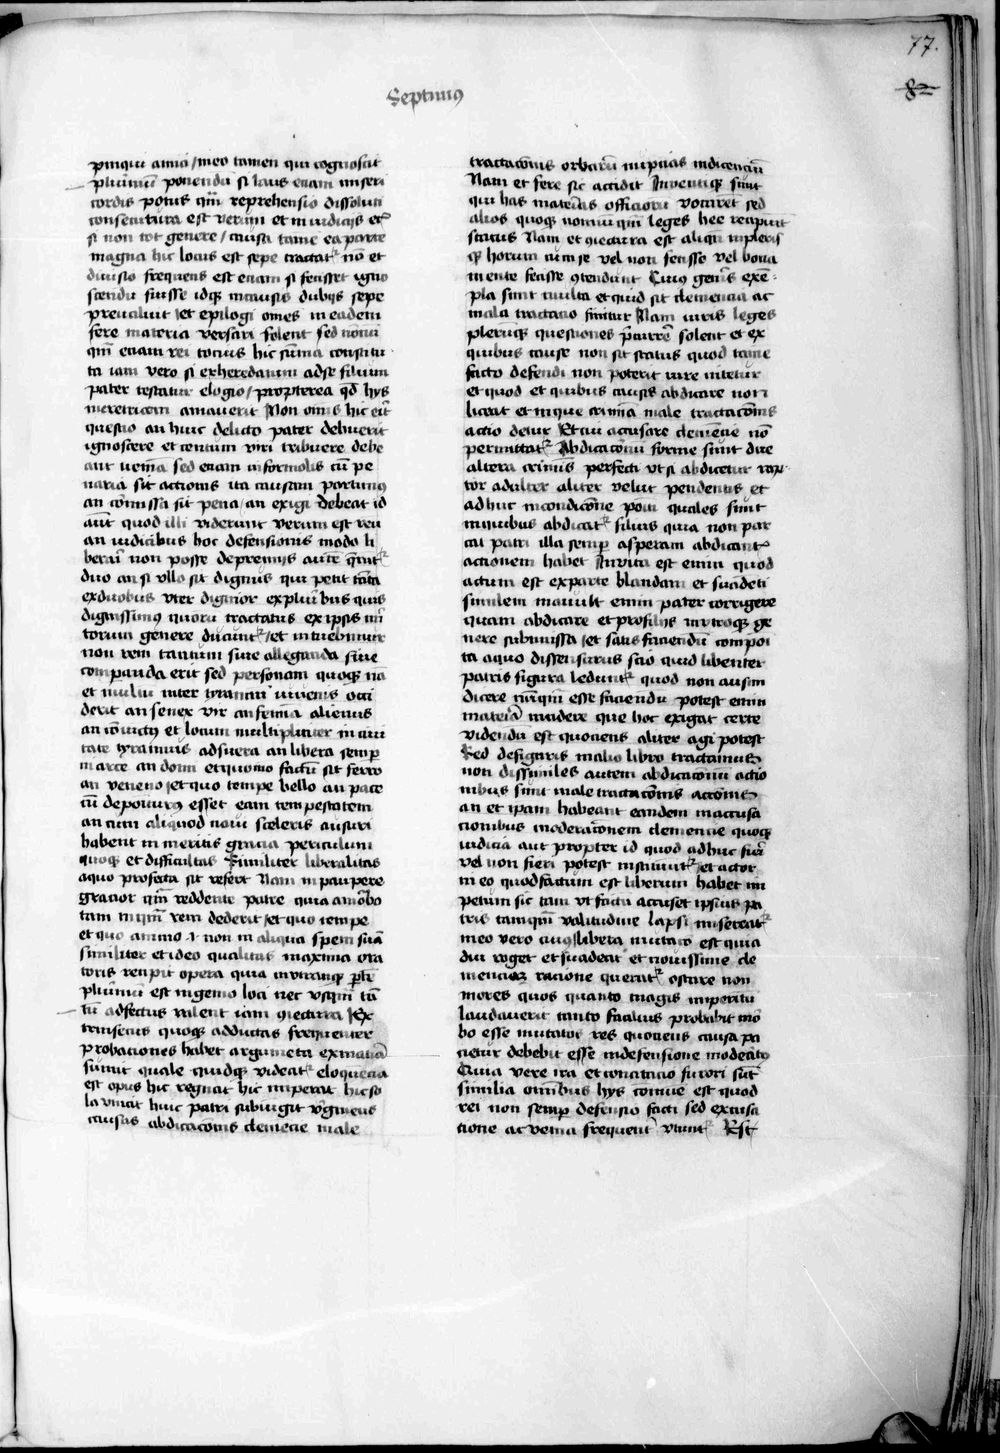 77.
8
Septimus
pinqui amici / meo tamen qui cognoscit
plurimū ponendū si laus etiam miseri
cordis potius qm̄ reprehensio dissoluti
consecutura est verum et in iudicijs etc
si non tot genere / causa tamē ea parte
magna hic locus est sepe tractatr nō et
diuisio frequens est etiam si fecisset igno
scendū fuisse idqz in causis dubijs sepe
preualuit Et epilogi omēs in eadem
fere materia versari solent sed nōnū
qm̄ etiam rei totius hic sūma constitu
ta iam vero si exheredatum a se filium
pater testatur elogio / propterea qd hys
meretricem amauerit Non omīs hic erit
questio an huic delicto pater debuerit
ignoscere et centum viri tribuere debe
ant ueniā sed etiam in formolis cū pe
naria sit actionis ita causam partimus
an cōmissa sit pena / an exigi debeat id
aūt quod illi viderunt verum est reū
an iudicibus hoc defensionis modo li
berari non posse de premijs autē querūtr
duo an si vllo sit dignus qui petit tāta
ex duobus vter dignior ex pluribus quis
dignissimus quorū tractatus ex ipsis mr̄i
torum genere ducuntr / et intuebimur
non rem tantum siue alleganda siue
comparada erit sed personam quoqz nā
et multū inter tyrannū iuuenis occi
derit an senex vir an femīa alienus
an cōiūctus et locum multipliciter in ciui
tate tyrannis adsueta an libera semp
in arce an domi et quomō factū sit ferro
an veneno et quo tempe bello an pace
cū depositurus esset eam tempestatem
an cum aliquod noui sceleris ausuri
habent in meritis gracia periculum
quoqz et difficultas Similiter liberalitas
a quo profecta sit refert Nam in paupere
gratior qm̄ reddente patre quia an orbo
tam inqm̄ rem dederit et quo tempe
et quo animo i non in aliqua spem suā
similiter et ideo qualitas maxima ora
toris recipit opera quia in vtramqz ptē
plurimū est ingenio loci nec vsqm̄ tā
tū adfectus valent iam quectura Ex
trinsecus quoqz adductas frequenter
probationes habet argumēta ex materia
sumit quale quidqz videatr eloquencia
est opus hic regnat hic imperat hic so
la vincit huic patri subiungit virginius
causas abdicacōnis demēcie male
tractacōnis orbarū nupcias indicenciū
Nam et fere sic accidit Inuentiqz sunt
qui has materias officiorū vocarēt sed
alios quoqz nonnūqm̄ leges hee recipiūt
status Nam et quectura est aliqn̄ inpleris
qz horum cum se vel non fecisse vel bona
mente fecisse contendunt Cuius generis exē
pla sunt multa et quid sit demencia ac
mala tractatio finitur Nam iuris leges
plerūqz questiones precurrē solent et ex
quibus cause non sit status quod tamē
facto defendi non poterit iure nitetur
et quod et quibus causis abdicare non
liceat et in que crimīa male tractacōnis
actio detur Et cui accusare demēcie nō
permittatr Abdicacōnū forme sunt due
altera crimīs perfecti vt si abdicetur rap
tor adulter aliter velut pendentis et
ad huc in condicōne positi quales sunt
in quibus abdicatr filius quia non par
cat patri illa semp asperam abdicant
actionem habet Inuita est enim quod
actum est ex parte blandam et suadeti
similem mauult enim pater corrigere
quam abdicare et pro filijs in vtroqz ge
nere submissa et satis faciendū composi
ta a quo dissensurus scio quid libenter
patris figura leduntr quod non ausim
dicere nūqm̄ esse faciendū potest enim
materia incidere que hoc exigat certe
videndū est quociens aliter agi potest
Sed de figuris malio libro tractamus
non dissimiles autem abdicacōnū actio
nibus sunt male tractacōnis accōnis
an et ipam habeant eandem in accusa
cionibus moderacōnem demencie quoqz
iudicia aut propter id quod ad huc fieri
vel non fieri potest instituūtr et actor
in eo quod factum est liberum habet im
petum sic tam vt facta accuset ipsius pa
tris tamqm̄ valitudine lapsi misereatr
meo vero cuius libera mutatio est quia
diu roget et suadeat et nouissime de
menciaz racione queratr ostare non
mores quos quanto magis imperitū
laudauerit tanto facilius probabit mō
bo esse mutatos res quociens causa pa
cietur debebit esse in defensione moderato
Quia vere ira et concitacio furori sūt
similia omībus hys cōmue est quod
rei non semp defensio facti sed excusa
tione ac venia frequent vtūntr Est